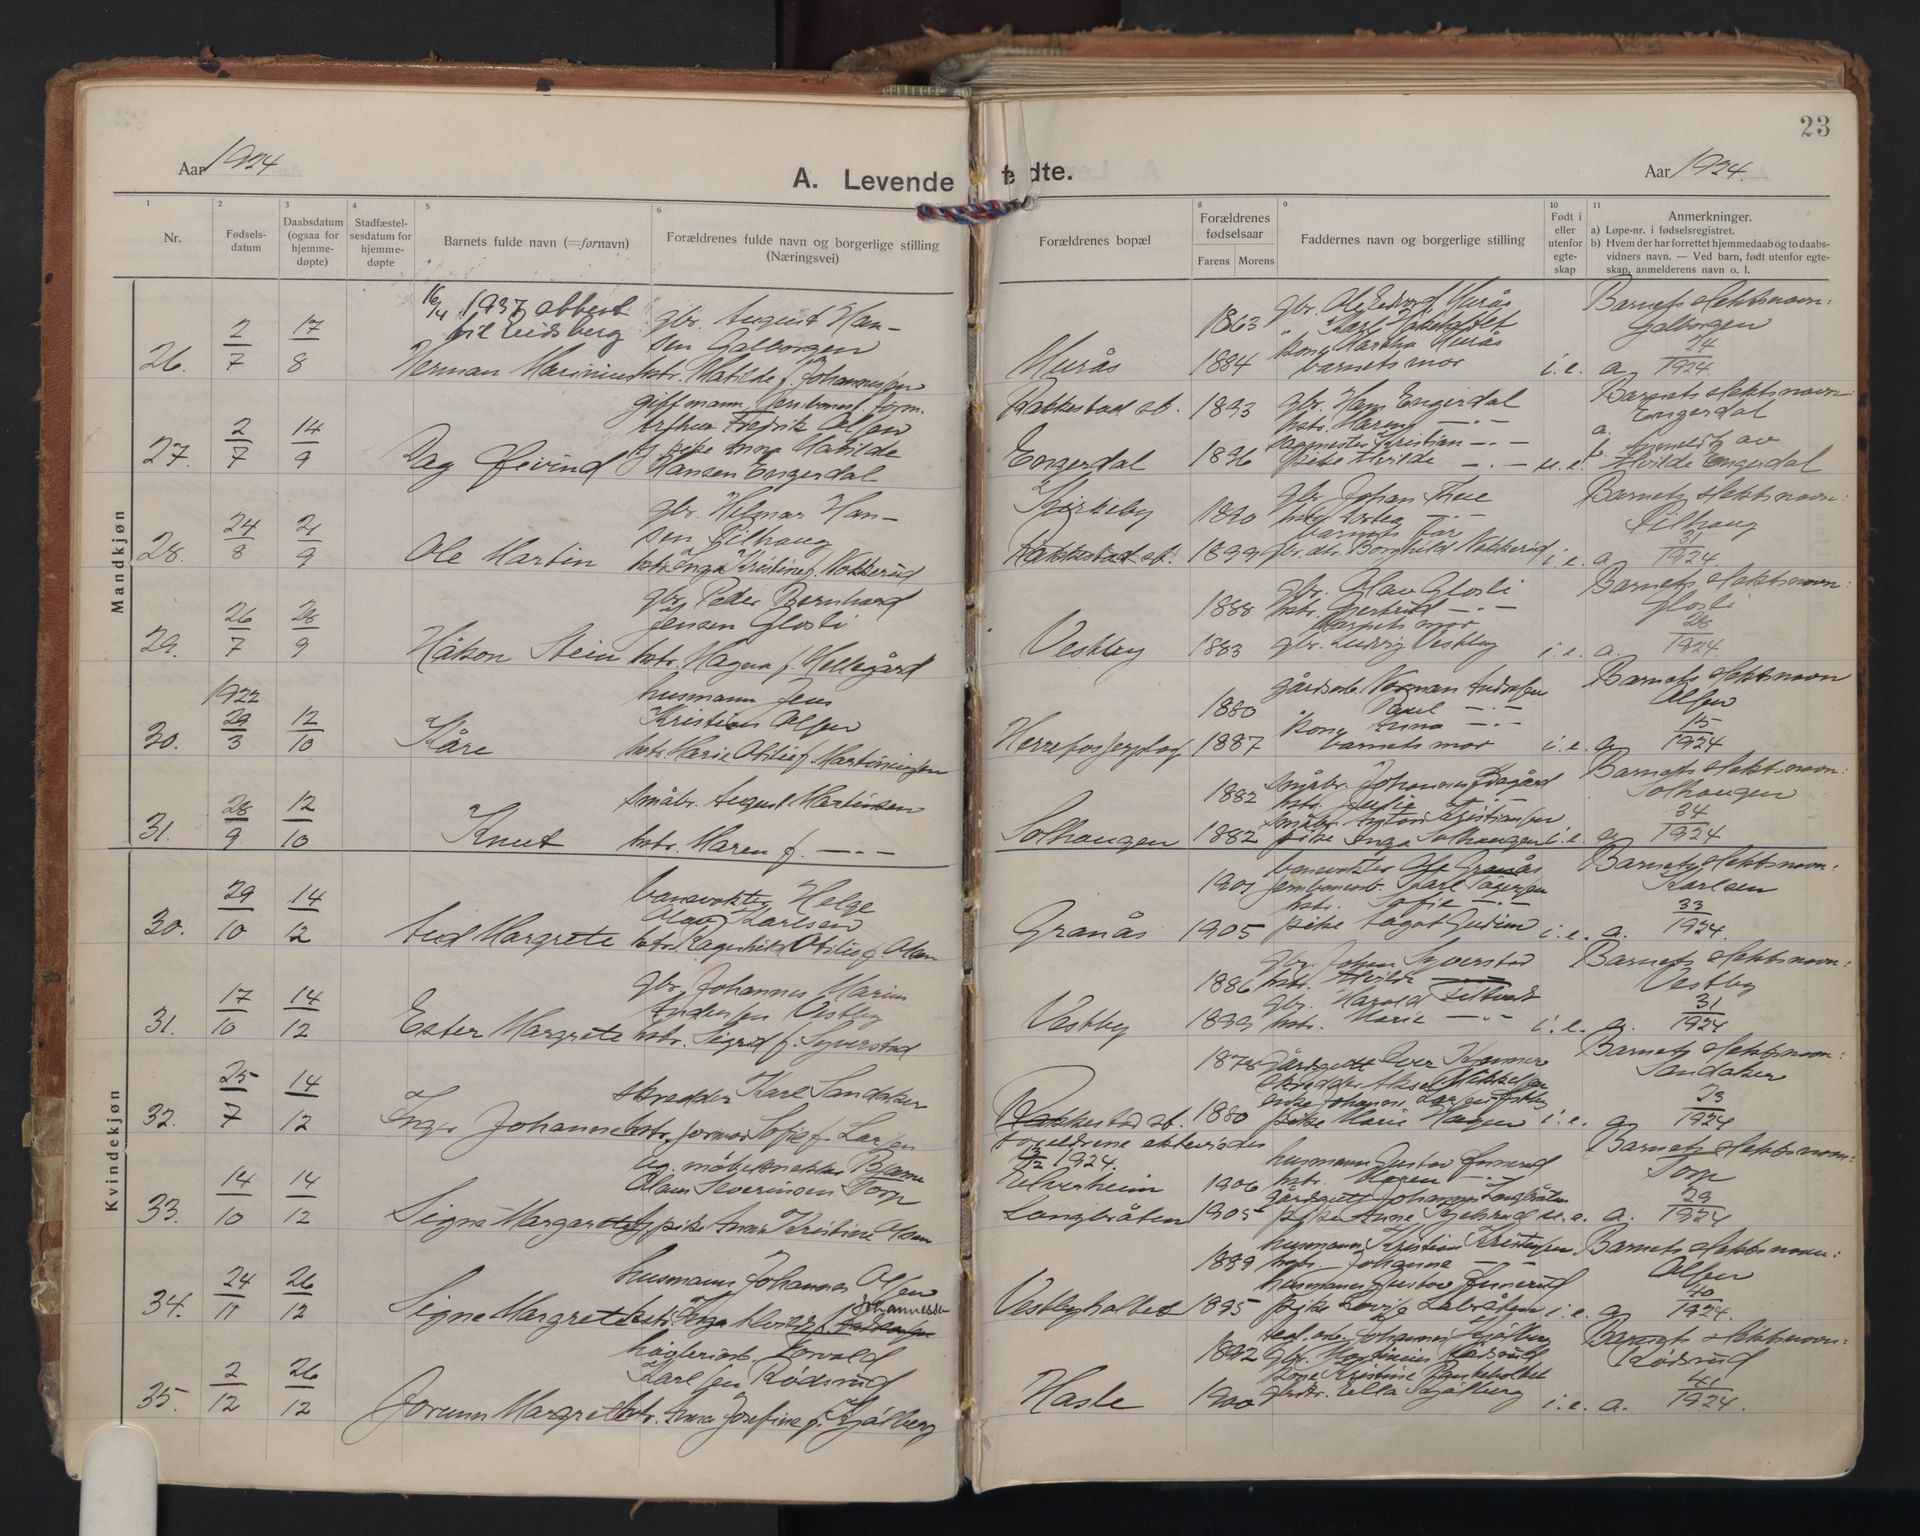 23
Aar 1924
A. Levende fødte.
Aar 1924.
1 2 3 4 5 6 8 9 10 11
Nr.
Fødsels-
datum
Daabsdatum
(ogsaa for
hjemme-
døpte)
Stadfæstel-
sesdatum for
hjemme-
døpte
Barnets fulde navn (=fornavn)
Forældrenes fulde navn og borgerlige stilling
(Næringsvei)
Forældrenes bopæl
Forældrenes
fødselsaar
Farens Morens
Faddernes navn og borgerlige stilling
Født i
eller
utenfor
egte-
skap
Anmerkninger.
a) Løpe-nr. i fødselsregistret.
b) Hvem der har forrettet hjemmedaab og to daabs-
vidners navn. — Ved barn, født utenfor egte-
skap, anmelderens navn o. l.
Mandkjøn
26. 2/7 17/8
16/4 1937 attest
til Eidsberg
Herman Marinius
gbr. August Han-
sen Galborgen
hstr. Matilde f. Johannesen
Murås
1863
1884
gbr. Ole Edvard Murås
kone Martha Murås
barnets mor
i.e.
Barnets slektsnavn:
Galborgen
a. 24/1924
27. 2/7 14/9
Dag Øivind
giftmann
Arthur Fredrik Olsen
og pike Anna Matilde
Hansen Engerdal
Rakkestad st.
Engerdal
1893
1896
gbr. Hans Engerdal
hstr. Maren —.—
Kristian —.—
pike Alvilde —.—
u.e.
Barnets slektsnavn:
Engerdal
a.
b. Anmeldt av
Alvilde Engerdal
28. 24/8 21/9
Ole Martin
gbr. Helmer Han-
sen Lilhaug
hstr. Inga Kristine f. Nokkerud
Kirkeby
Rakkestad st.
1890
1899
gbr. Johan
barnets far
gbr. dtr. Borghild Nokkerud
i.e.
Barnets slektsnavn:
Lilhaug
a. 31/1924
29. 26/7 28/9
Håkon Stein
gbr. Peder Bernhard
Jensen Glosli
hstr. Magna f. Hellegård
Vestby
1888
1883
gbr. Olav Glosli
hstr. Gjertrud —.—
barnets mor
gbr. Ludvig Vestby
i.e.
Barnets slektsnavn:
Glosli
a. 28/1924
30. 1922 29/3 12/10
Kåre
husmann Jens
Kristian Olsen
hstr. Marie Otilie f. Martinsen
1880
1887
gårdsarb. Herman Andresen
Paul —.—
kone Anna —.—
barnets mor
i.e.
Barnets slektsnavn
Olsen
a. 15/1924
31. 28/9 12/10
Knut
småbr. August Martinsen
hstr. Maren f. —.—
Solhaugen
1882
1882
småbr. Johannes
hstr. Julie —.—
småbr. Anton Kristiansen
pike Inga Solhaugen
i.e.
Barnets slektsnavn:
Solhaugen
a. 34/1924
Kvindekjøn
30. 29/10 14/12
Aud Margrete
banevokter Helge
Olav Karlsen
hstr. Ragnhild Otilie f. Olsen
Granås
1901
1905
banevokter Ole Granås
jernbanearb. Karl
hstr. Sofie —.—
pike Aagot
i.e.
Barnets slektsnavn:
Karlsen
a. 33/1924.
31. 17/10 14/12
Ester Margrete
gbr. Johannes Marius
Andersen Vestby
hstr. Sigrid f. Syverstad
Vestby
1886
1899
gbr. Johan Syverstad
hstr. Alvilde
gbr. Harald
hstr. Marie —.—
i.e.
Barnets slektsnavn:
Vestby
a. 31/1924
32. 25/7 14/12
Inger Johanne
skredder Karl Sandaker
hstr. jormor Sofie f. Larsen
Rakkestad st.
1878
1880
gårdgutt Iver
skredder Aksel Mikkelsen
enke Johanne Larsen
pike Marie Hagen
i.e.
Barnets slektsnavn:
Sandaker
a. 23/1924
33. 14/10 14/12
Signe Margarete
ug. møbelsnekker Bjarne
Olaus Severinsen Torp
og pike Anna Kristine Olsen
Foreldrene ekteviedes
13/12 1924.
Elverheim
Langbråten
1906
1905
husmann Gustav
hstr. Maren —.—
gårdgutt Johannes Langbråten
pike Anne
u.e.
Barnets slektsnavn:
Torp
a. 29/1924
34. 24/11 26/12
Signe Margrete
husmann Johannes Olsen
hstr. Inga Alvilde f. Andersen Johannessen
Vestbyholtet
1889
1895
husmann Kristian Kristensen
hstr. Johanne —.—
husmann Gustav
pike Lovise
i.e.
Barnets slektsnavn:
Olsen
a. 40/1924.
35. 2/12 26/12
Jorunn Margrethe
Torvald
Karlsen Rødsrud
hstr. Anna Josefine f. Kjølberg
Hasle
1892
1900
Johannes Kjølberg
gbr. Martinius Rødsrud
kone Kristine
Ella Kjølberg
i.e.
Barnets slektsnavn:
Rødsrud
a. 41/1924.